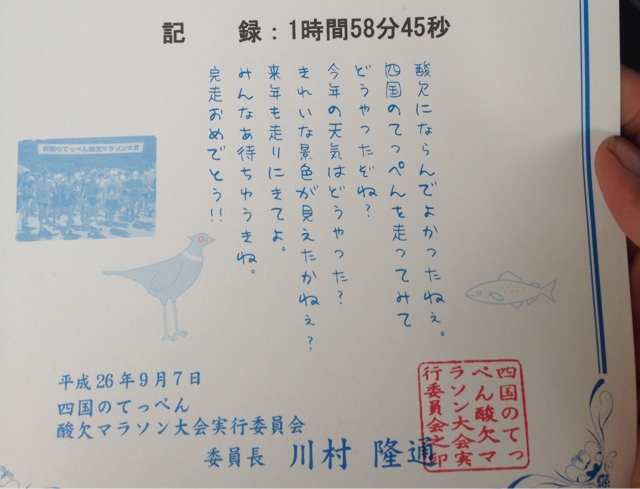 記　録：1時間58分45秒
酸欠にならんでよかったねぇ。
四国のてっぺんを走ってみて
どうやったぞね？
今年の天気はどうやった？
きれいな景色が見えたかねぇ？
来年も走りにきてよ。
みんなあ待ちゅうきね。
完走おめでとう!!
四国のてっぺん酸欠マラソン大会
平成26年9月7日
四国のてっぺん
酸欠マラソン大会実行委員会
委員長　川村 隆通
四国のてっ
ぺん酸欠マ
ラソン大会実
行委員会之印